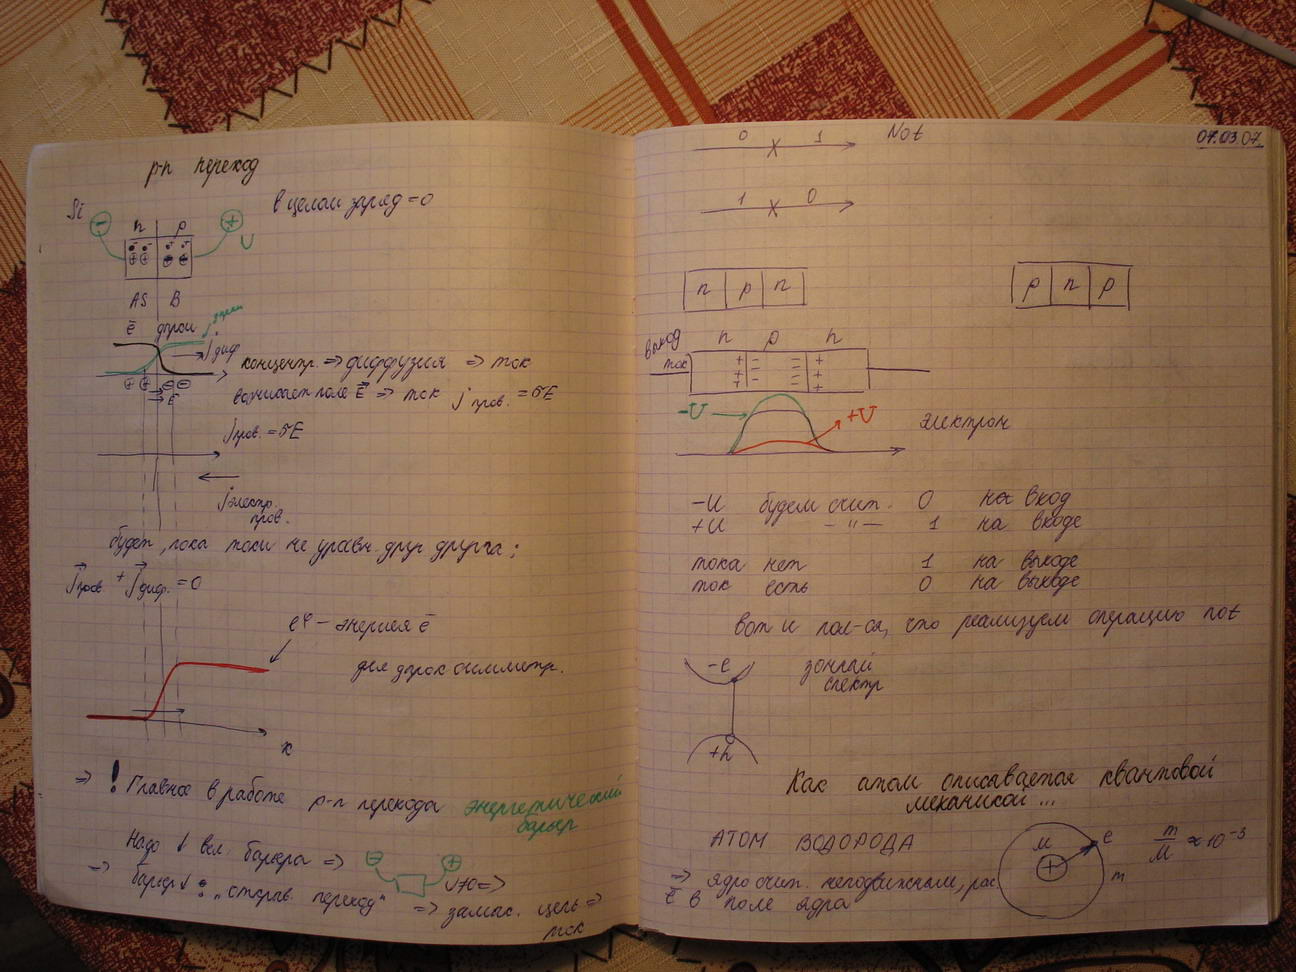 p-n переход
Si
в целом заряд = 0
n p
U
AS B
ē дырки
j диф.
концентр. ⇒ диффузия ⇒ ток
возникает поле E⃗ ⇒ ток j пров. = σE
E⃗
j пров. = σE
j электр. пров.
будет, пока токи не уравн. друг друга:
j⃗ пров + j⃗ диф. = 0
eφ – энергия ē
для дырок симметр.
x
⇒ ! Главное в работе p-n перехода энергетический
барьер
Надо ↓ вел. барьера ⇒
U≠0 ⇒
⇒ барьер↓ : „открыв. переход" ⇒ замык. цепь ⇒
ток
0 1 Not
07.03.07
1 0
n p n
p n p
выход
ток
n p n
-U
+U
электрон
-U будем счит. 0 на вход
+U – " – 1 на входе
тока нет 1 на выходе
ток есть 0 на выходе
вот и пол-ся, что реализуем операцию not
-e
зонный
спектр
+h
Как атом описывается квантовой
механикой ...
АТОМ ВОДОРОДА
M e
m
m/M ≈ 10⁻³
⇒ ядро счит. неподвижным, рас.
ē в поле ядра